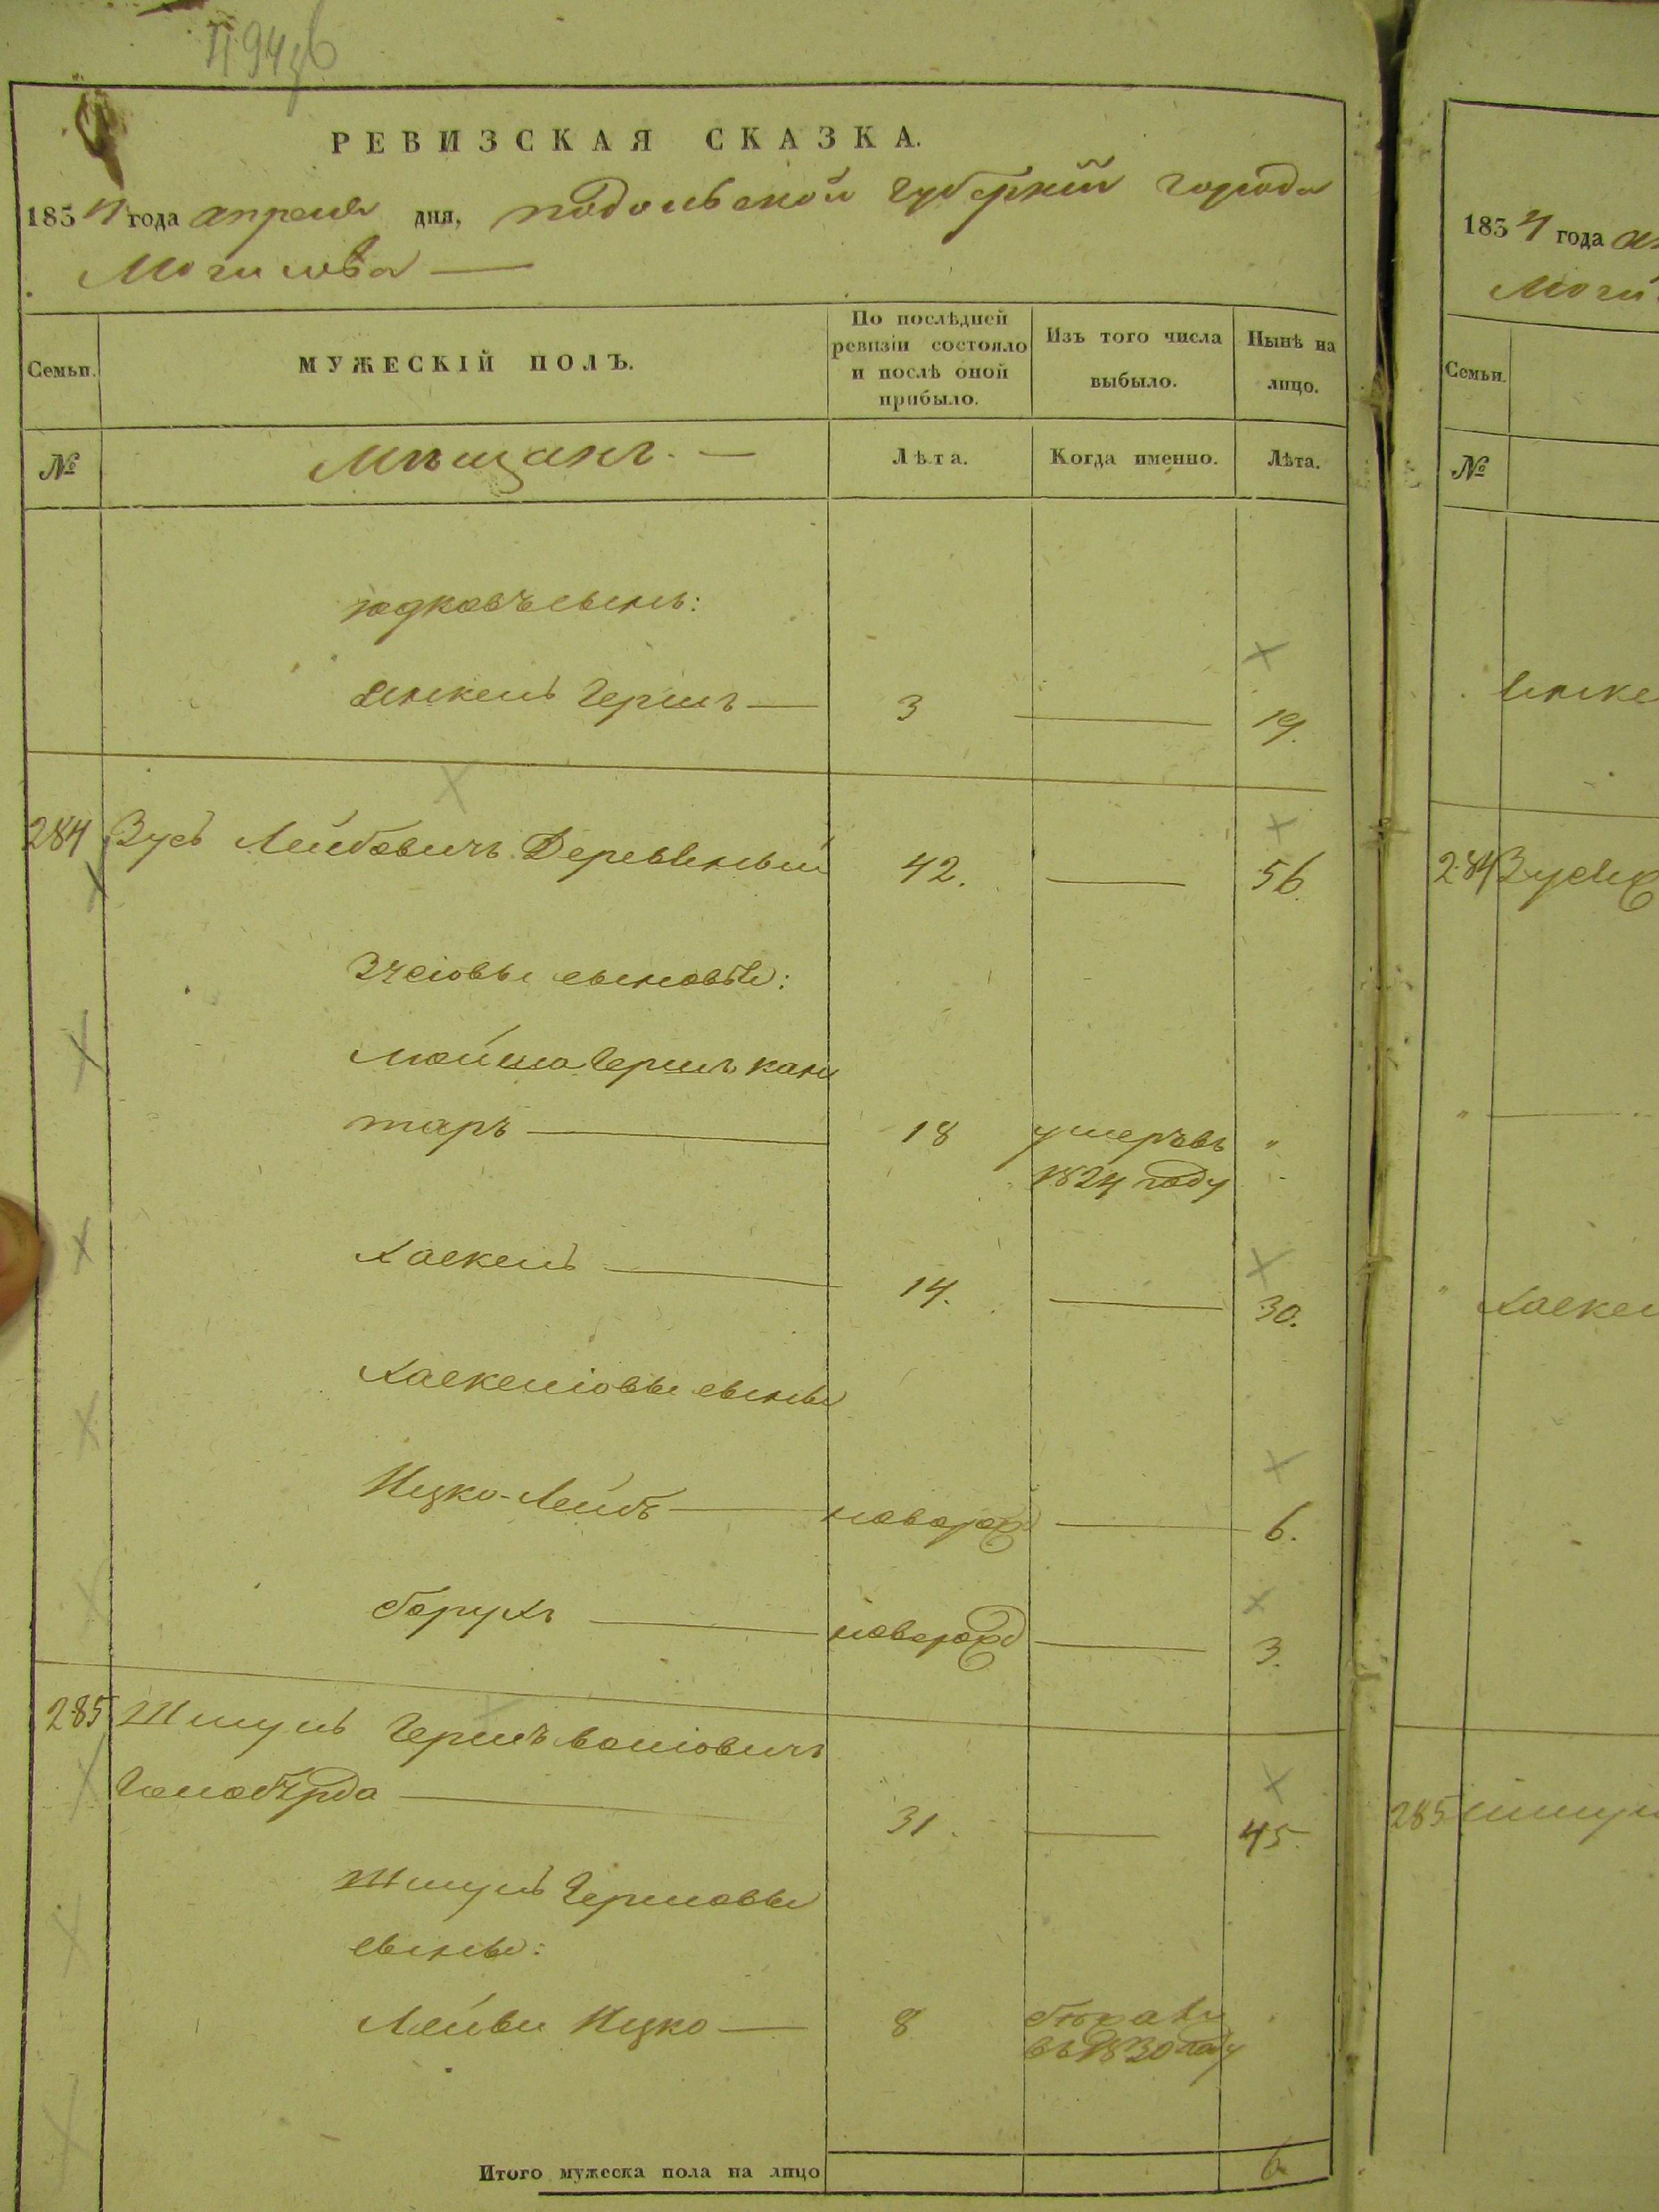 РЕВИЗСКАЯ СКАЗКА.
1834 года апреля дня, подольской губернии города
Могилева —
Семьи. МУЖЕСКІЙ ПОЛЪ. По послѣдней ревизіи состояло и послѣ оной прибыло. Изъ того числа выбыло. Нынѣ на лицо.
№ Мѣщанъ. — Лѣта. Когда именно. Лѣта.
юдковъ сынъ:
Янкель Гершъ — 3 — 19.
284 Зусь Лейбовичъ 42. — 56.
сыновьи:
Мойша Гершъ кан
таръ — 18 умеръ въ "
1824 году
Хаскель — 14. — 30.
Хаскеліовы сыны
Ицко-Лейбъ — новорож — 6.
борухъ — новорож — 3.
285 Шмуль Гершъ
31. — 45.
Шмуль Гершовы
сыны:
Лейби Ицко — 8
въ 1830 году
Итого мужеска пола на лицо 6
1834 года
Семьи.
№
284
285